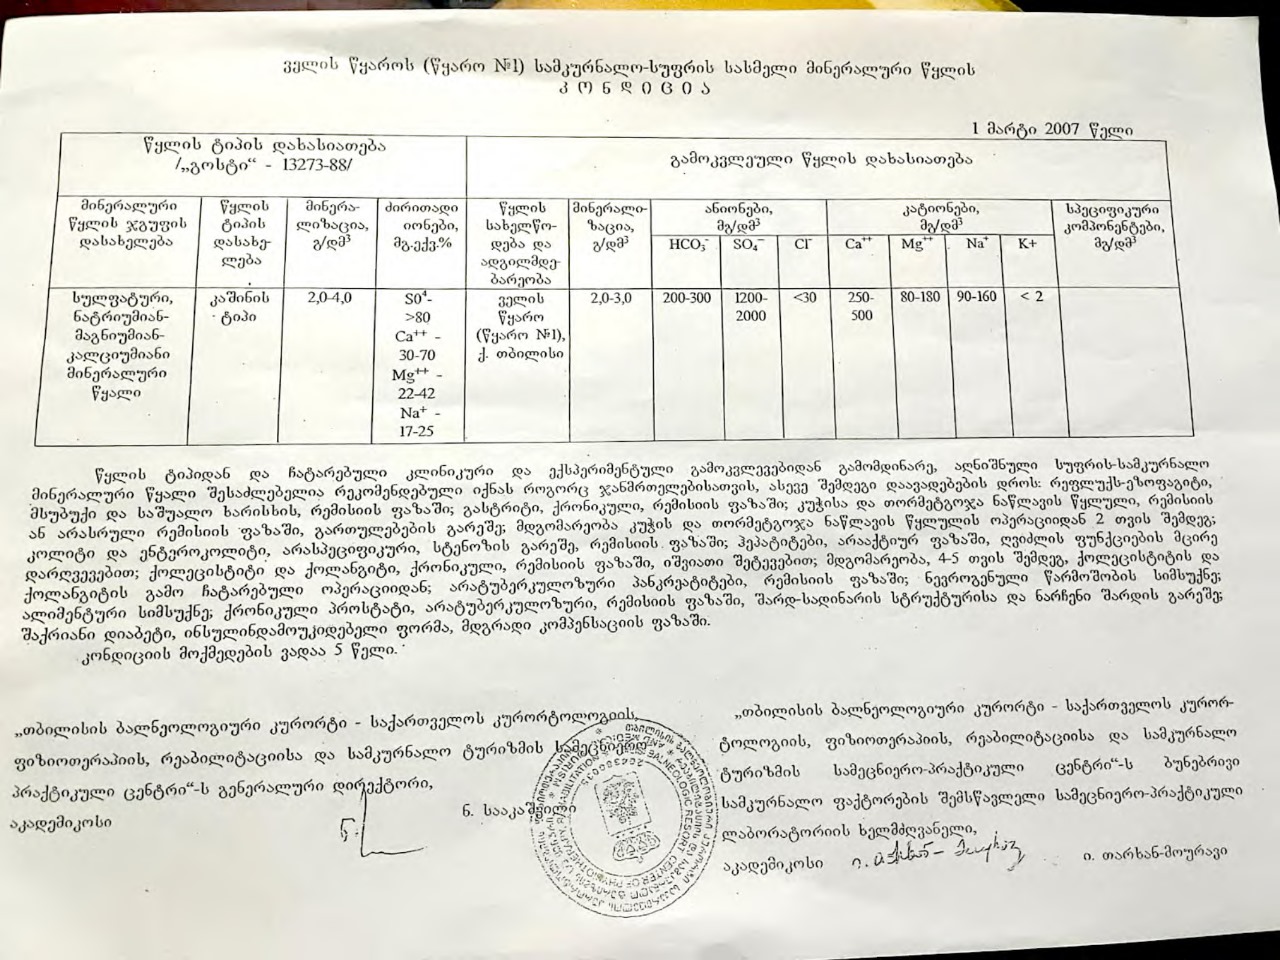 ველის წყაროს (წყარო №1) სამკურნალო-სუფრის სასმელი მინერალური წყლის
კ ო ნ დ ი ც ი ა
1 მარტი 2007 წელი
წყლის ტიპის დახასიათება
/„გოსტი“ - 13273-88/
გამოკვლეული წყლის დახასიათება
მინერალური
წყლის ჯგუფის
დასახელება
წყლის
ტიპის
დასახე-
ლება
მინერა-
ლიზაცია,
გ/დმ³
ძირითადი
იონები,
მგ-ექვ.%
წყლის
სახელწო-
დება და
ადგილმდე-
ბარეობა
მინერალი-
ზაცია,
გ/დმ³
ანიონები,
მგ/დმ³
HCO₃⁻
SO₄⁻⁻
Cl⁻
კატიონები,
მგ/დმ³
Ca⁺⁺
Mg⁺⁺
Na⁺
K+
სპეციფიკური
კომპონენტები,
მგ/დმ³
სულფატური,
ნატრიუმიან-
მაგნიუმიან-
კალციუმიანი
მინერალური
წყალი
კაშინის
ტიპი
2,0-4,0
S0⁴-
>80
Ca⁺⁺ -
30-70
Mg⁺⁺ -
22-42
Na⁺ -
17-25
ველის
წყარო
(წყარო №1),
ქ. თბილისი
2,0-3,0
200-300
1200-
2000
<30
250-
500
80-180
90-160
< 2
წყლის ტიპიდან და ჩატარებული კლინიკური და ექსპერიმენტული გამოკვლევებიდან გამომდინარე, აღნიშნული სუფრის-სამკურნალო
მინერალური წყალი შესაძლებელია რეკომენდებული იქნას როგორც ჯანმრთელებისათვის, ასევე შემდეგი დაავადებების დროს: რეფლუქს-ეზოფაგიტი,
მსუბუქი და საშუალო ხარისხის, რემისიის ფაზაში; გასტრიტი, ქრონიკული, რემისიის ფაზაში; კუჭისა და თორმეტგოჯა ნაწლავის წყლული, რემისიის
ან არასრული რემისიის ფაზაში, გართულებების გარეშე; მდგომარეობა კუჭის და თორმეტგოჯა ნაწლავის წყლულის ოპერაციიდან 2 თვის შემდეგ;
კოლიტი და ენტეროკოლიტი, არასპეციფიკური, სტენოზის გარეშე, რემისიის ფაზაში; ჰეპატიტები, არააქტიურ ფაზაში, ღვიძლის ფუნქციების მცირე
დარღვევებით; ქოლეცისტიტი და ქოლანგიტი, ქრონიკული, რემისიის ფაზაში, იშვიათი შეტევებით; მდგომარეობა, 4-5 თვის შემდეგ, ქოლეცისტიტის და
ქოლანგიტის გამო ჩატარებული ოპერაციიდან; არატუბერკულოზური პანკრეატიტები, რემისიის ფაზაში; ნევროგენული წარმოშობის სიმსუქნე;
ალიმენტური სიმსუქნე; ქრონიკული პროსტატი, არატუბერკულოზური, რემისიის ფაზაში, შარდ-სადინარის სტრუქტურისა და ნარჩენი შარდის გარეშე;
შაქრიანი დიაბეტი, ინსულინდამოუკიდებელი ფორმა, მდგრადი კომპენსაციის ფაზაში.
კონდიციის მოქმედების ვადაა 5 წელი.
„თბილისის ბალნეოლოგიური კურორტი - საქართველოს კურორტოლოგიის,
ფიზიოთერაპიის, რეაბილიტაციისა და სამკურნალო ტურიზმის სამეცნიერო
პრაქტიკული ცენტრი“-ს გენერალური დირექტორი,
აკადემიკოსი
ნ. სააკაშვილი
„თბილისის ბალნეოლოგიური კურორტი - საქართველოს კურორ-
ტოლოგიის, ფიზიოთერაპიის, რეაბილიტაციისა და სამკურნალო
ტურიზმის სამეცნიერო-პრაქტიკული ცენტრი“-ს ბუნებრივი
სამკურნალო ფაქტორების შემსწავლელი სამეცნიერო-პრაქტიკული
ლაბორატორიის ხელმძღვანელი,
აკადემიკოსი
ი. თარხან-მოურავი